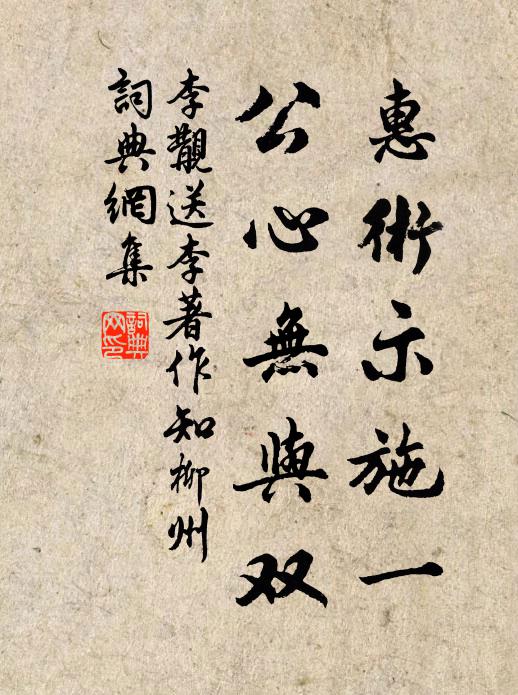 惠術示施一
公心無與双
李覯送李著作知柳州
詞典網集
詞典网印